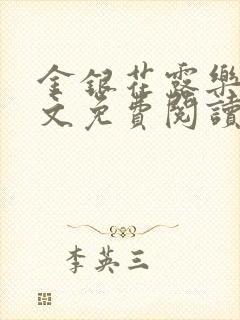 金銀花露樂
文免費閱讀
李英三